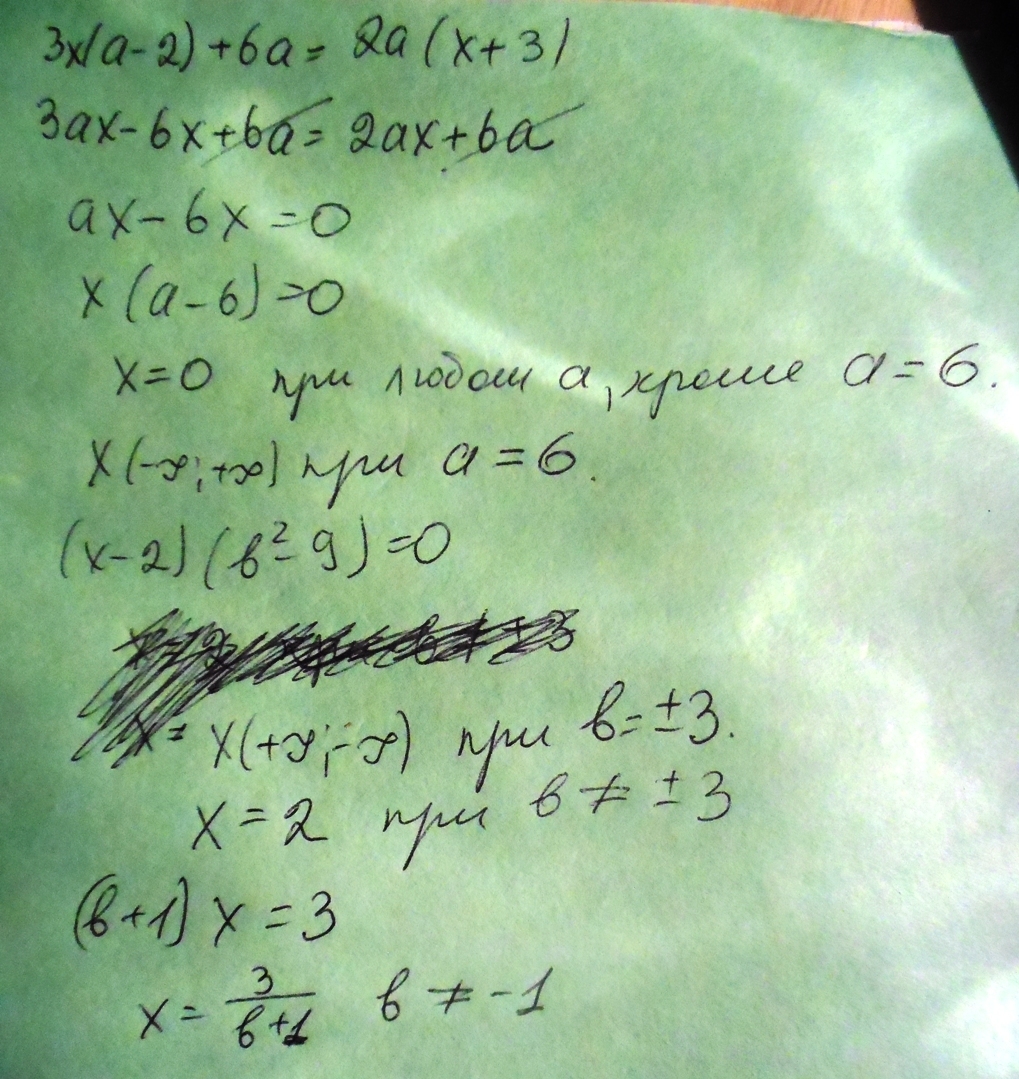 3x(a-2)+6a= 2a(x+3)
3ax-6x+6a= 2ax+6a
ax-6x=0
x(a-6)=0
x=0 при любом a, кроме a=6.
x(-∞;+∞) при a=6.
(x-2)(в²-9)=0
x= x(+∞;-∞) при в=±3.
x=2 при в≠±3
(в+1)x=3
x=3/(в+1) в≠-1